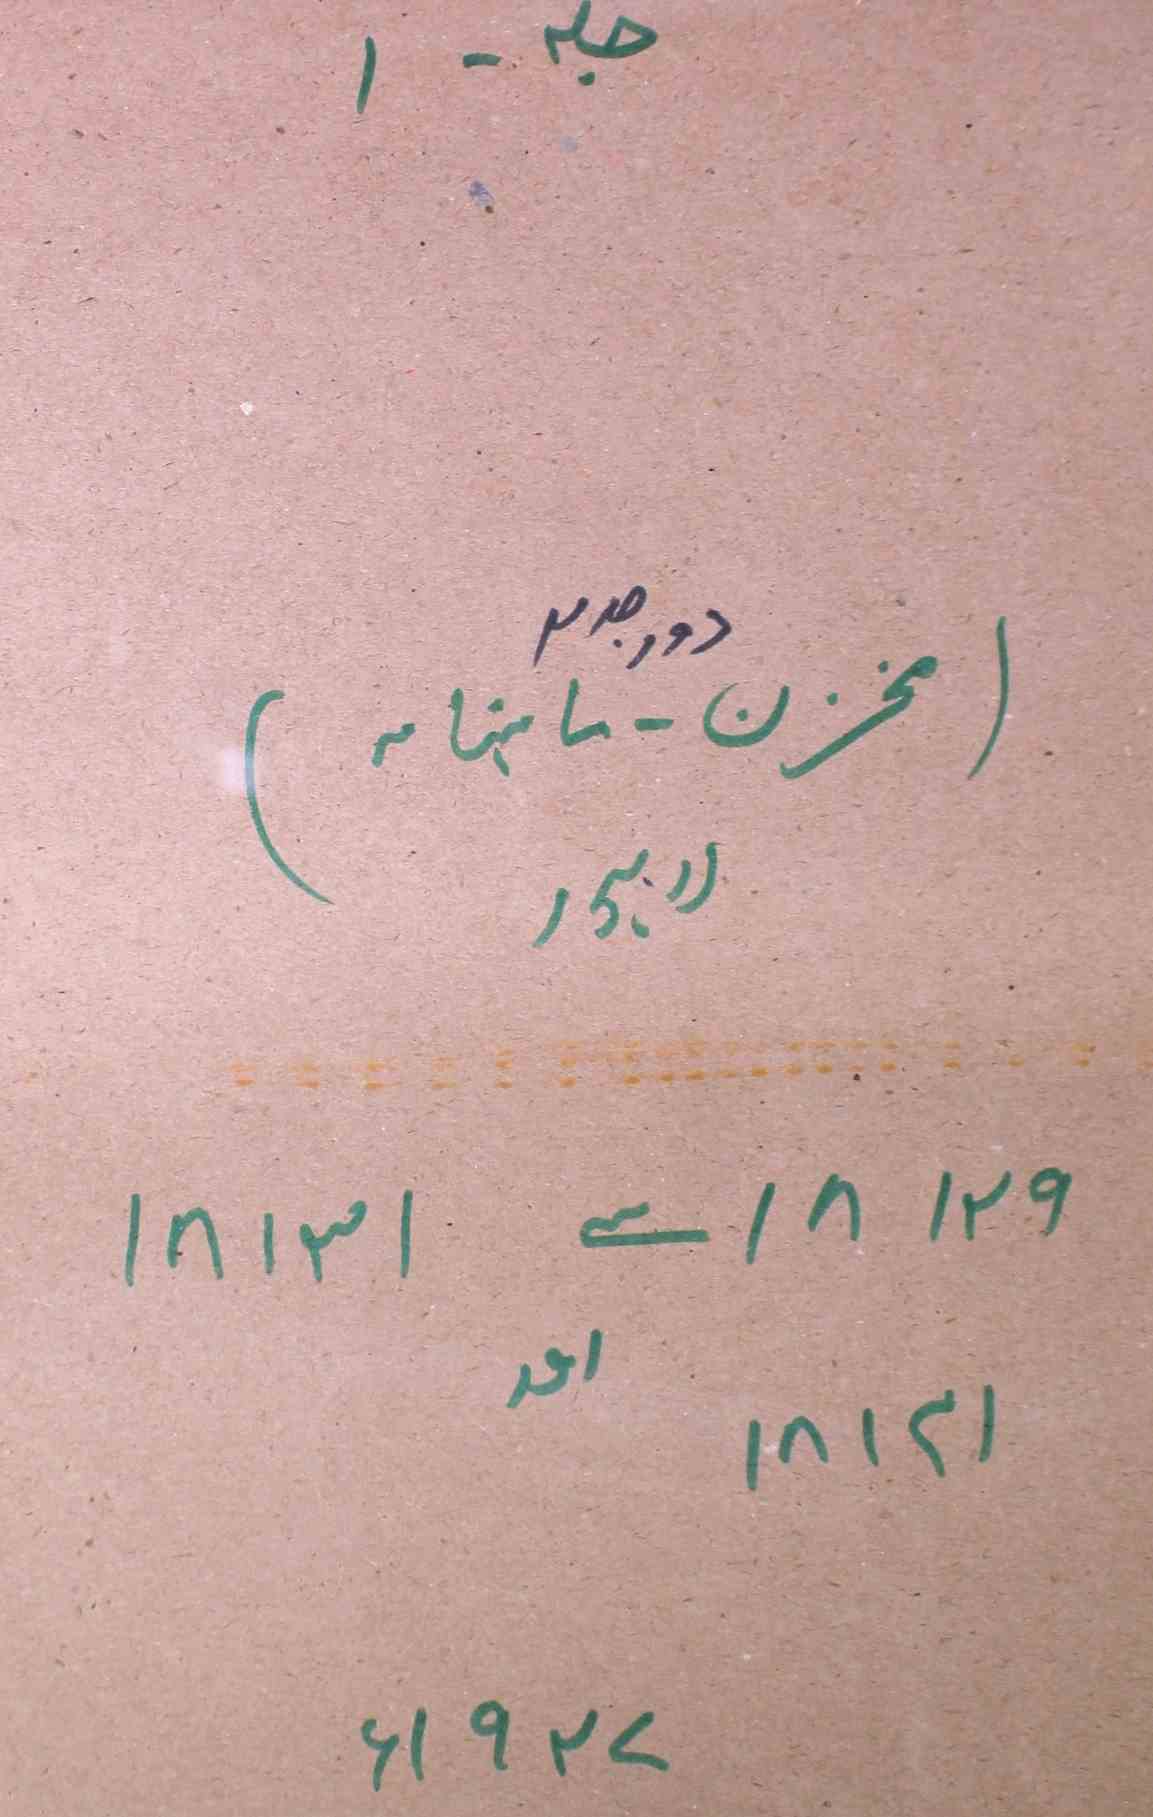 جلد - ۱
دور جدید ۲
(مخزن - ماہنامہ)
لاہور
۱۸۱۲۹ سے ۱۸۱۳۱
اور
۱۸۱۴۱
۱۹۲۷ء